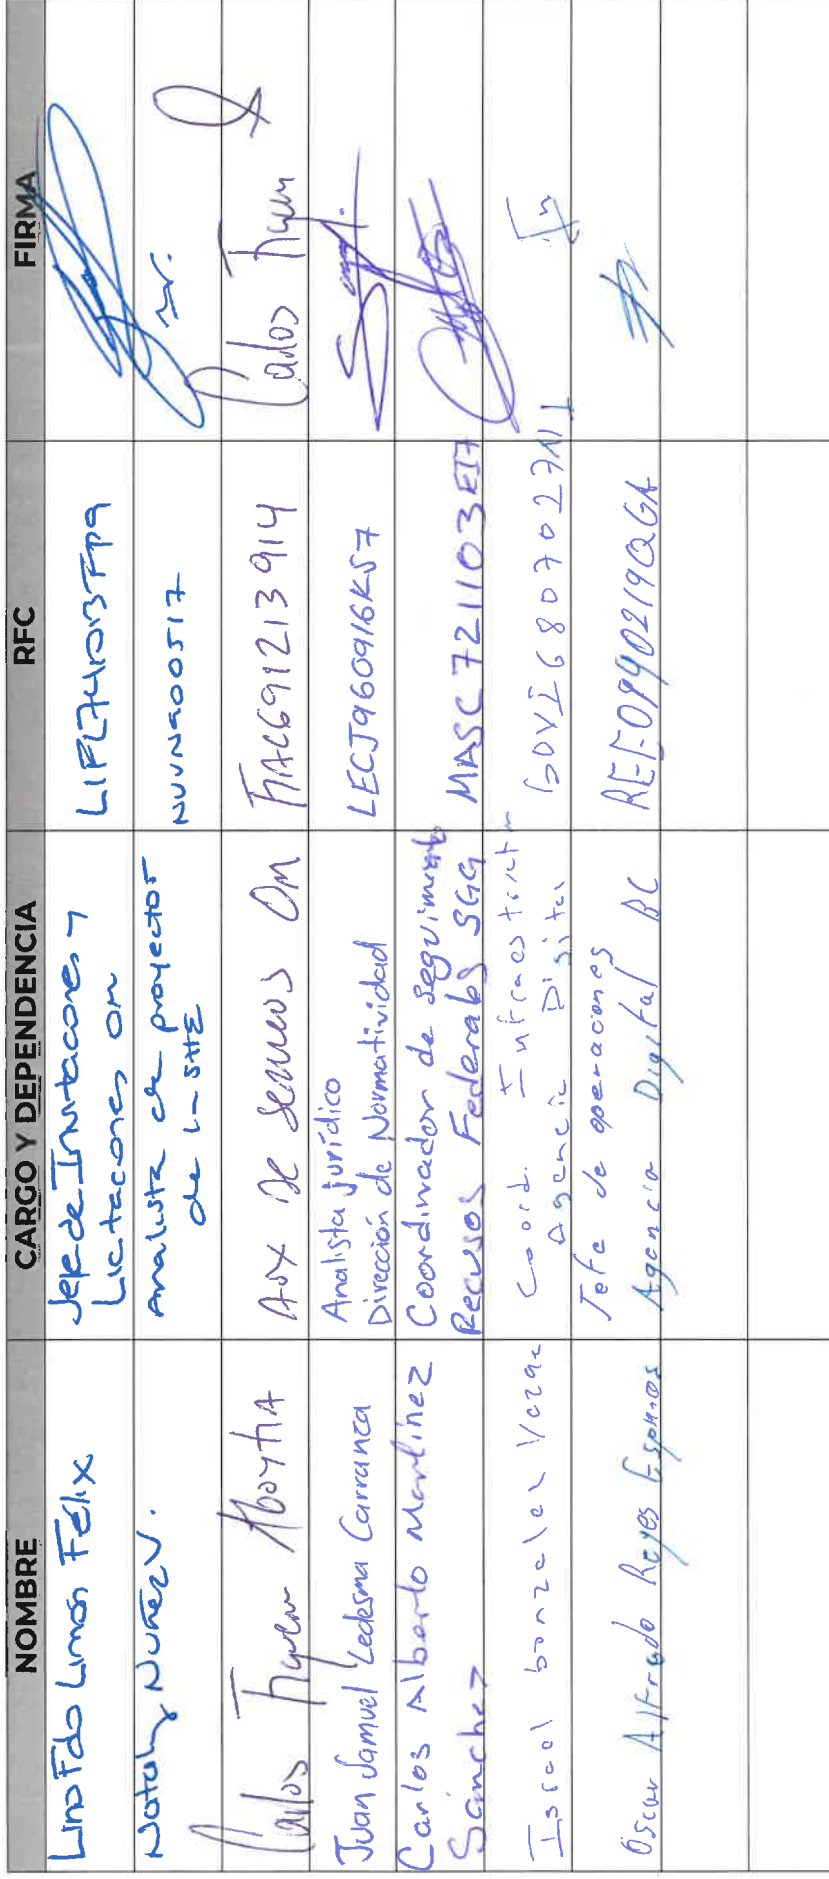 NOMBRE CARGO Y DEPENDENCIA RFC FIRMA
Lino Fdo Limón Félix
Jefe de Invitaciones y
Licitaciones OM
Nataly Nuñez V.
Analista de proyectos
de la SHE
NUVN900517
Carlos
Aux de servicios OM
Carlos
Juan Samuel Ledesma Carranza
Analista jurídico
Dirección de Normatividad
LECJ960916KS7
Carlos Alberto Martínez
Sánchez
Coordinador de seguimiento
Recusos Federales SGG
MASC721103EI7
Israel Gonzalez
Coord. Infraestructura
Agencia Digital
GOVI680702
Oscar Alfredo Reyes Espinosa
Jefe de operaciones
Agencia Digital BC